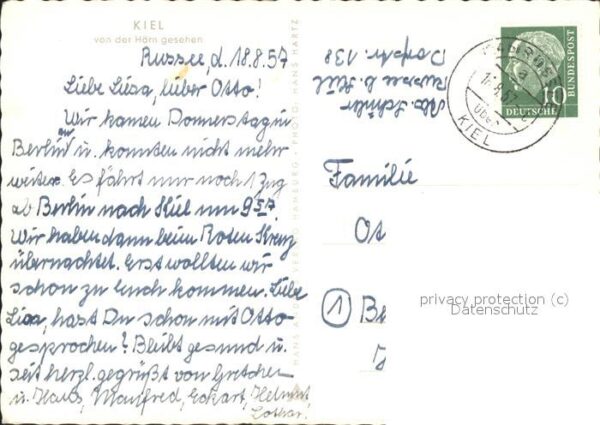 KIEL
von der Hörn gesehen
Russee, d. 18.8.57
Liebe Lisa, lieber Otto!
Wir kamen Donnerstag in
Berlin an u. konnten nicht mehr
weiter. Es fährt nur noch 1 Zug
ab Berlin nach Kiel um 9⁵⁷.
Wir haben dann beim Roten Kreuz
übernachtet. Erst wollten wir
schon zu Euch kommen. Liebe
Lisa, hast Du schon mit Otto
gesprochen? Bleibt gesund u.
seit herzl. gegrüßt von Gretchen
u. Hans, Manfred, Eckart, Helmut,
Lothar.
HAMBURG · PHOTO: HANS HARTZ
Abs. Schüler
Russee b. Kiel
Dorfstr. 138
KIEL
10
DEUTSCHE
BUNDESPOST
Familie
Ot
1 Be
privacy protection (c)
Datenschutz